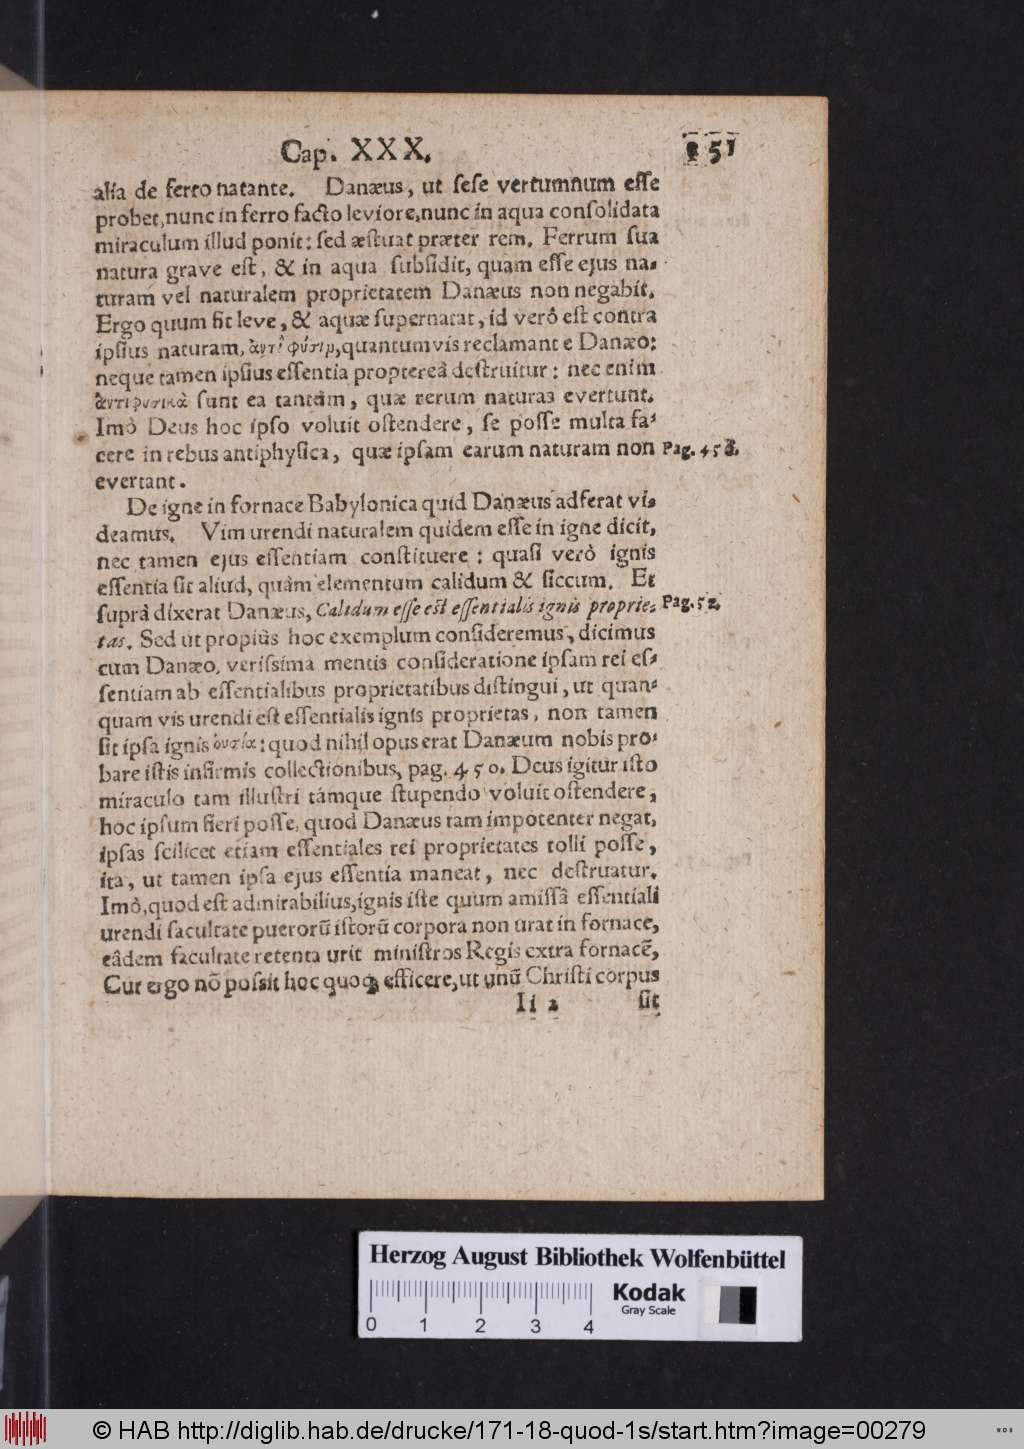 Cap. XXX. 251
alia de ferro natante. Danæus, ut sese vertumnum esse
probet, nunc in ferro facto leviore, nunc in aqua consolidata
miraculum illud ponit: sed æstuat præter rem. Ferrum sua
natura grave est, & in aqua subsidit, quam esse ejus na-
turam vel naturalem proprietatem Danæus non negabit.
Ergo quum fit leve, & aquæ supernatat, id verò est contra
ipsius naturam, ἀντὶ φύσιμ, quantumvis reclamante Danæo:
neque tamen ipsius essentia proptereâ destruitur: nec enim
ἀντιφυσικὰ sunt ea tantùm, quæ rerum naturas evertunt.
Imò Deus hoc ipso voluit ostendere, se posse multa fa-
cere in rebus antiphysica, quæ ipsam earum naturam non
evertant.
Pag. 458.
De igne in fornace Babylonica quid Danæus adferat vi-
deamus. Vim urendi naturalem quidem esse in igne dicit,
nec tamen ejus essentiam constituere: quasi verò ignis
essentia sit aliud, quàm elementum calidum & siccum. Et
suprà dixerat Danæus, Calidum esse est essentialis ignis proprie-
Pag. 52.
tas. Sed ut propiùs hoc exemplum consideremus, dicimus
cum Danæo, verissima mentis consideratione ipsam rei es-
sentiam ab essentialibus proprietatibus distingui, ut quan-
quam vis urendi est essentialis ignis proprietas, non tamen
sit ipsa ignis οὐσία: quod nihil opus erat Danæum nobis pro-
bare istis infirmis collectionibus, pag. 450. Deus igitur isto
miraculo tam illustri támque stupendo voluit ostendere,
hoc ipsum fieri posse, quod Danæus tam impotenter negat,
ipsas scilicet etiam essentiales rei proprietates tolli posse,
ita, ut tamen ipsa ejus essentia maneat, nec destruatur.
Imò, quod est admirabilius, ignis iste quum amissâ essentiali
urendi facultate puerorũ istorũ corpora non urat in fornace,
eâdem facultate retenta urit ministros Regis extra fornacẽ,
Cur ergo nõ possit hoc quoq; efficere, ut unũ Christi corpus
Ii 2 sit
Herzog August Bibliothek Wolfenbüttel
Kodak
Gray Scale
0 1 2 3 4
© HAB http://diglib.hab.de/drucke/171-18-quod-1s/start.htm?image=00279